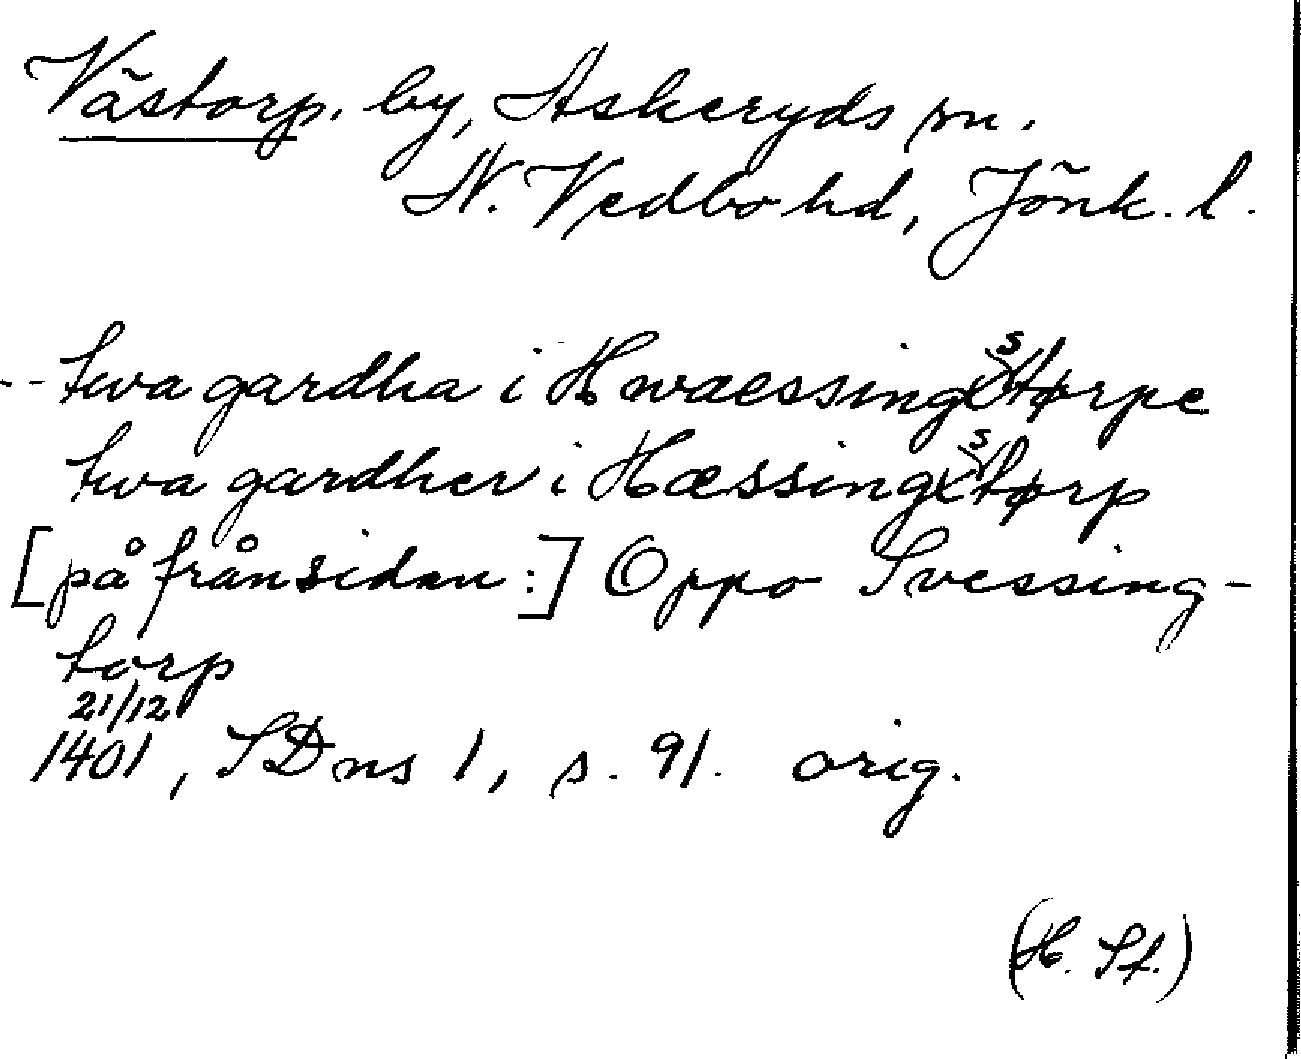 Västorp, by, Askeryds sn.
N. Vedbo hd, Jönk. l.
-- twa gardha i Hwæssingxstørpe
twa gardher i Hæssingxstørp
[på frånsidan:] Oppo Svessing-
torp
21/12
1401, SDns 1, s. 91. orig.
(H. St.)